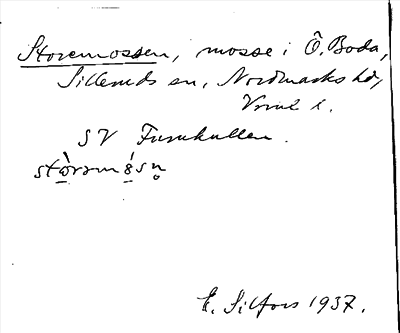 Storemossen, mosse i Ö. Boda,
Silleruds sn, Nordmarks hd,
Vrml l.
SV Furukullen.
stòrəmósn̥
E. Silfors 1937.